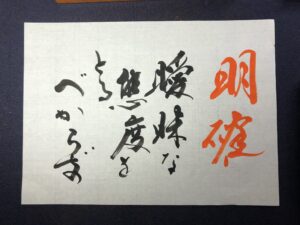 明確
曖昧な
態度を
とる
べからず